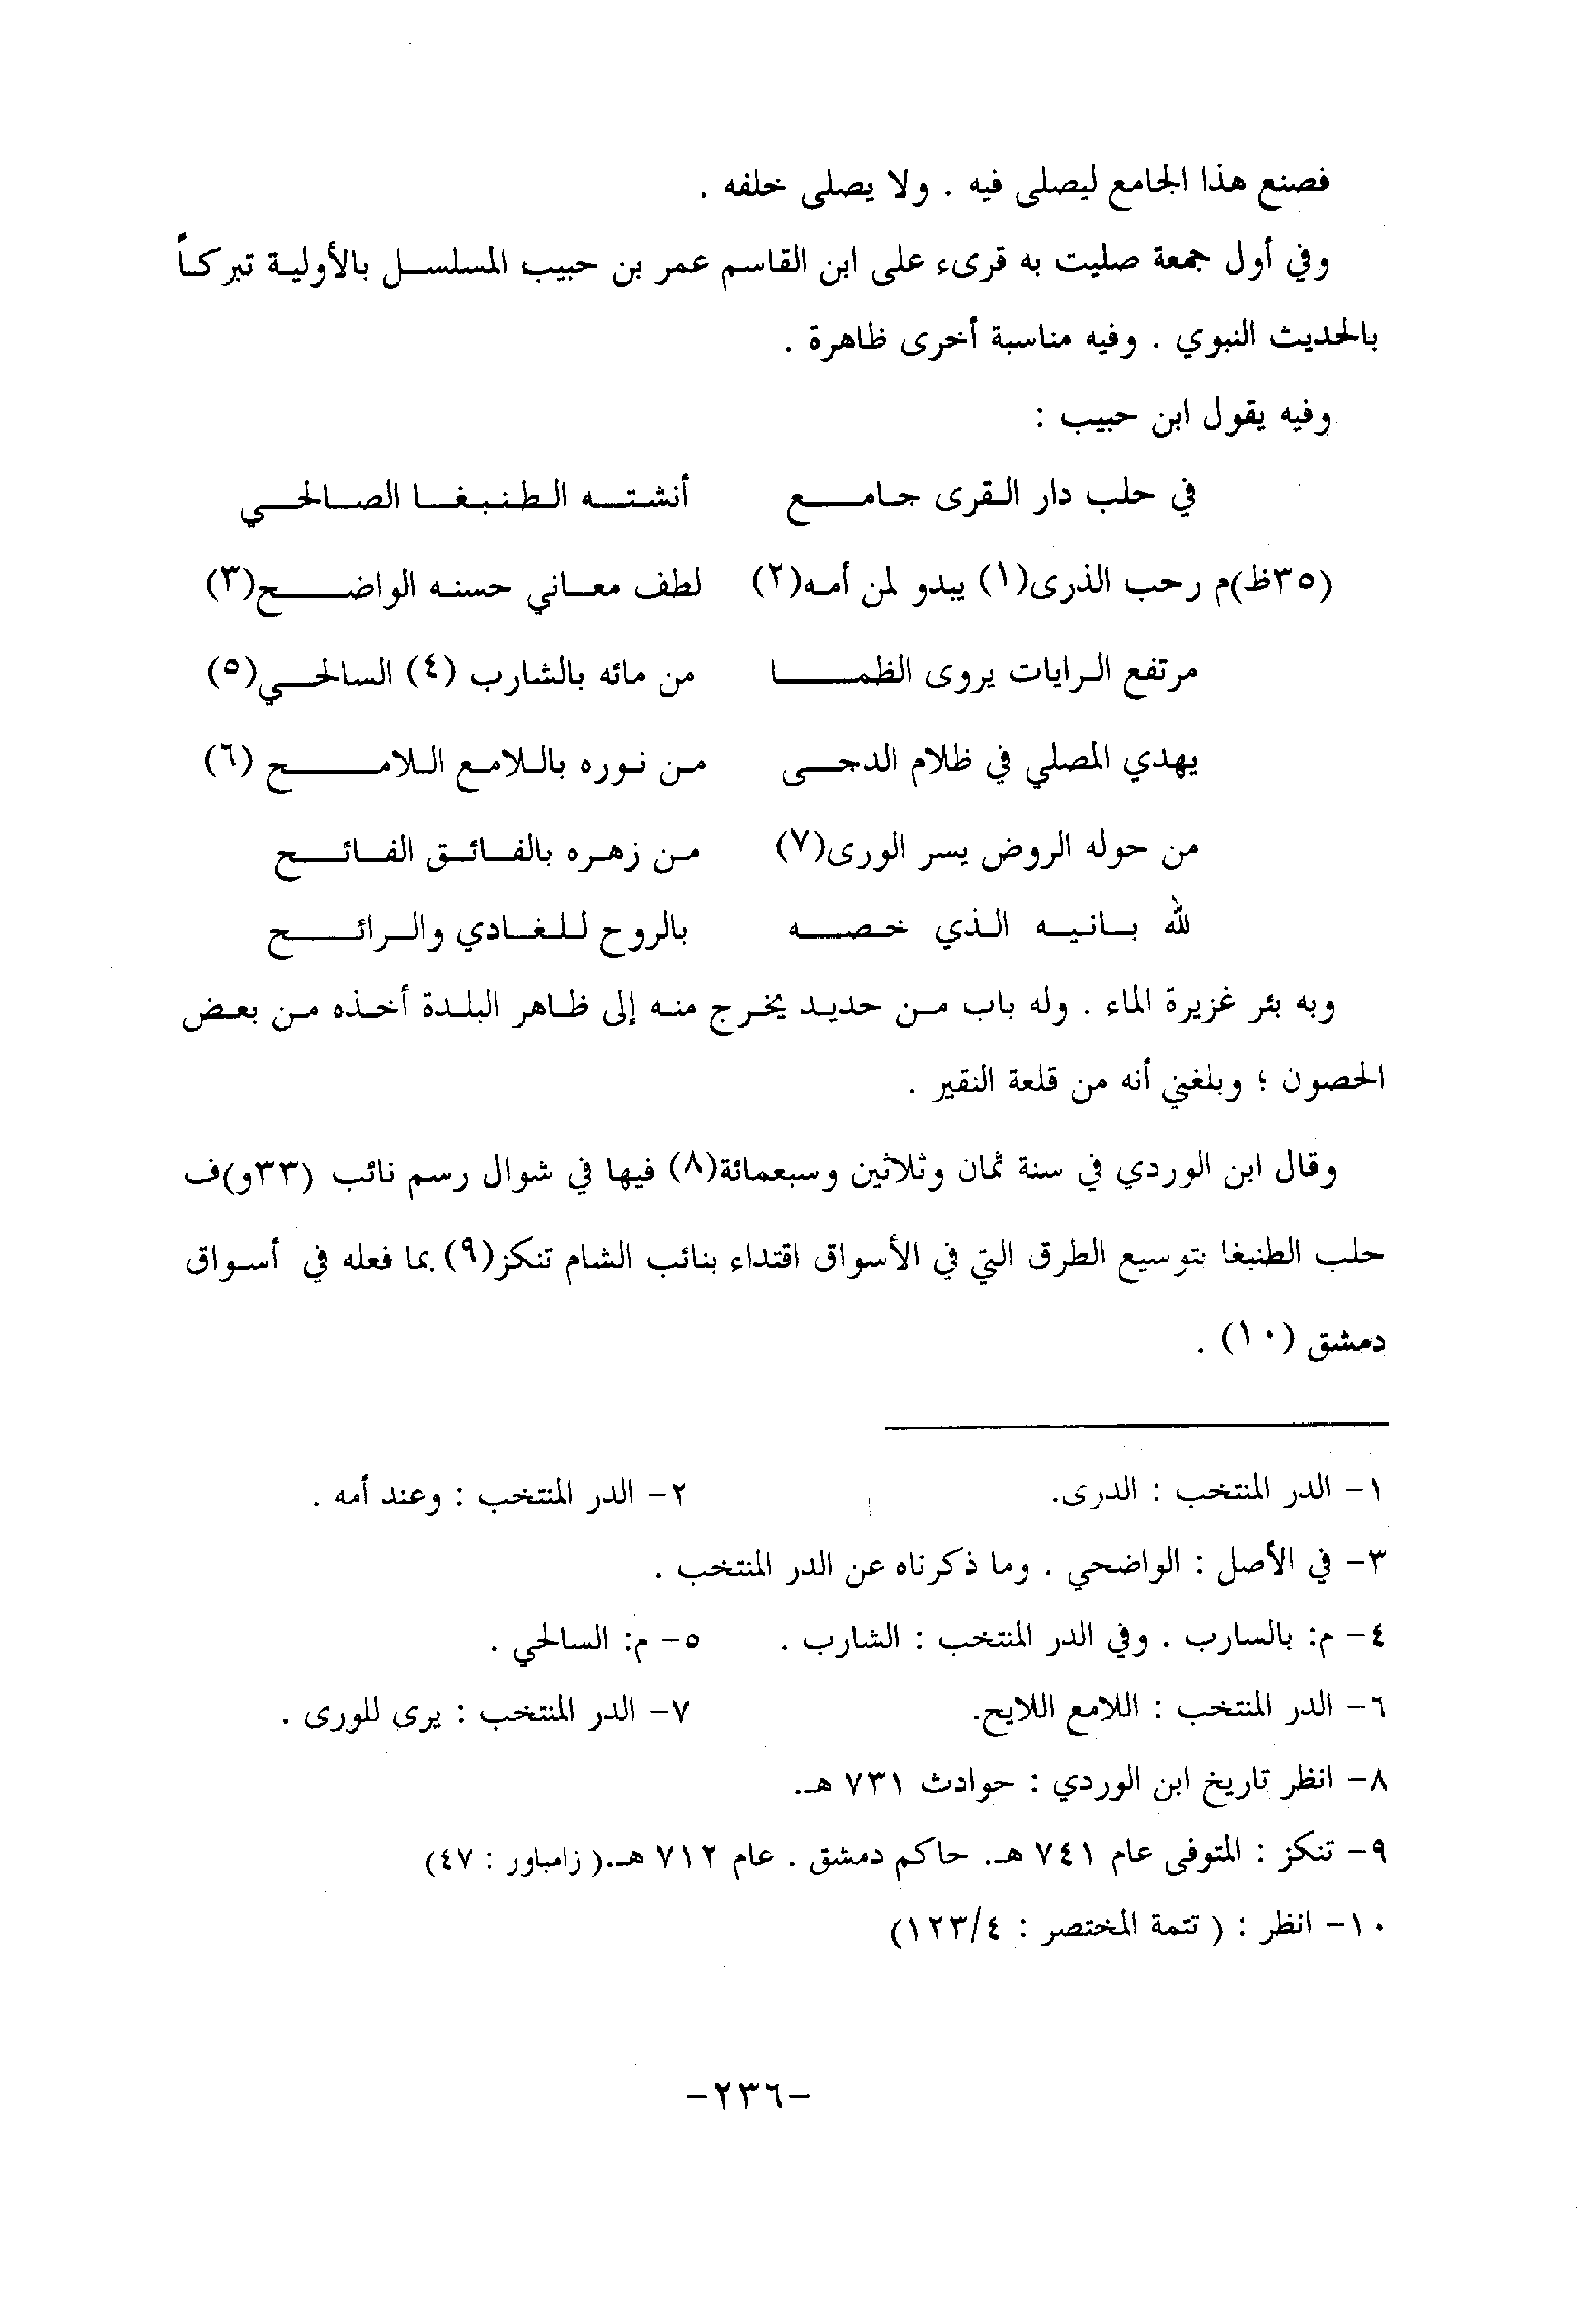 فصنع هذا الجامع ليصلى فيه . ولا يصلى خلفه .
وفي أول جمعة صليت به قرىء على ابن القاسم عمر بن حبيب المسلسل بالأولية تبركاً
بالحديث النبوي . وفيه مناسبة أخرى ظاهرة .
وفيه يقول ابن حبيب :
في حلب دار القرى جامع أنشته الطنبغا الصالحي
(٣٥ظ)م رحب الذرى(١) يبدو لمن أمه(٢) لطف معاني حسنه الواضح(٣)
مرتفع الرايات يروى الظما من مائه بالشارب (٤) السالحي(٥)
يهدي المصلي في ظلام الدجى من نوره باللامع اللامح (٦)
من حوله الروض يسر الورى(٧) من زهره بالفائق الفائح
لله بانيه الذي خصه بالروح للغادي والرائح
وبه بئر غزيرة الماء . وله باب من حديد يخرج منه إلى ظاهر البلدة أخذه من بعض
الحصون ؛ وبلغني أنه من قلعة النقير .
وقال ابن الوردي في سنة ثمان وثلاثين وسبعمائة(٨) فيها في شوال رسم نائب (٣٣و)ف
حلب الطنبغا بتوسيع الطرق التي في الأسواق اقتداء بنائب الشام تنكز(٩) بما فعله في أسواق
دمشق (١٠) .
١- الدر المنتخب : الدرى. ٢- الدر المنتخب : وعند أمه .
٣- في الأصل : الواضحي . وما ذكرناه عن الدر المنتخب .
٤- م: بالسارب . وفي الدر المنتخب : الشارب . ٥- م: السالحي .
٦- الدر المنتخب : اللامع اللايح. ٧- الدر المنتخب : يرى للورى .
٨- انظر تاريخ ابن الوردي : حوادث ٧٣١ هـ.
٩- تنكز : المتوفى عام ٧٤١ هـ. حاكم دمشق . عام ٧١٢ هـ.( زامباور : ٤٧)
١٠- انظر : ( تتمة المختصر : ١٢٣/٤)
-٢٣٦-